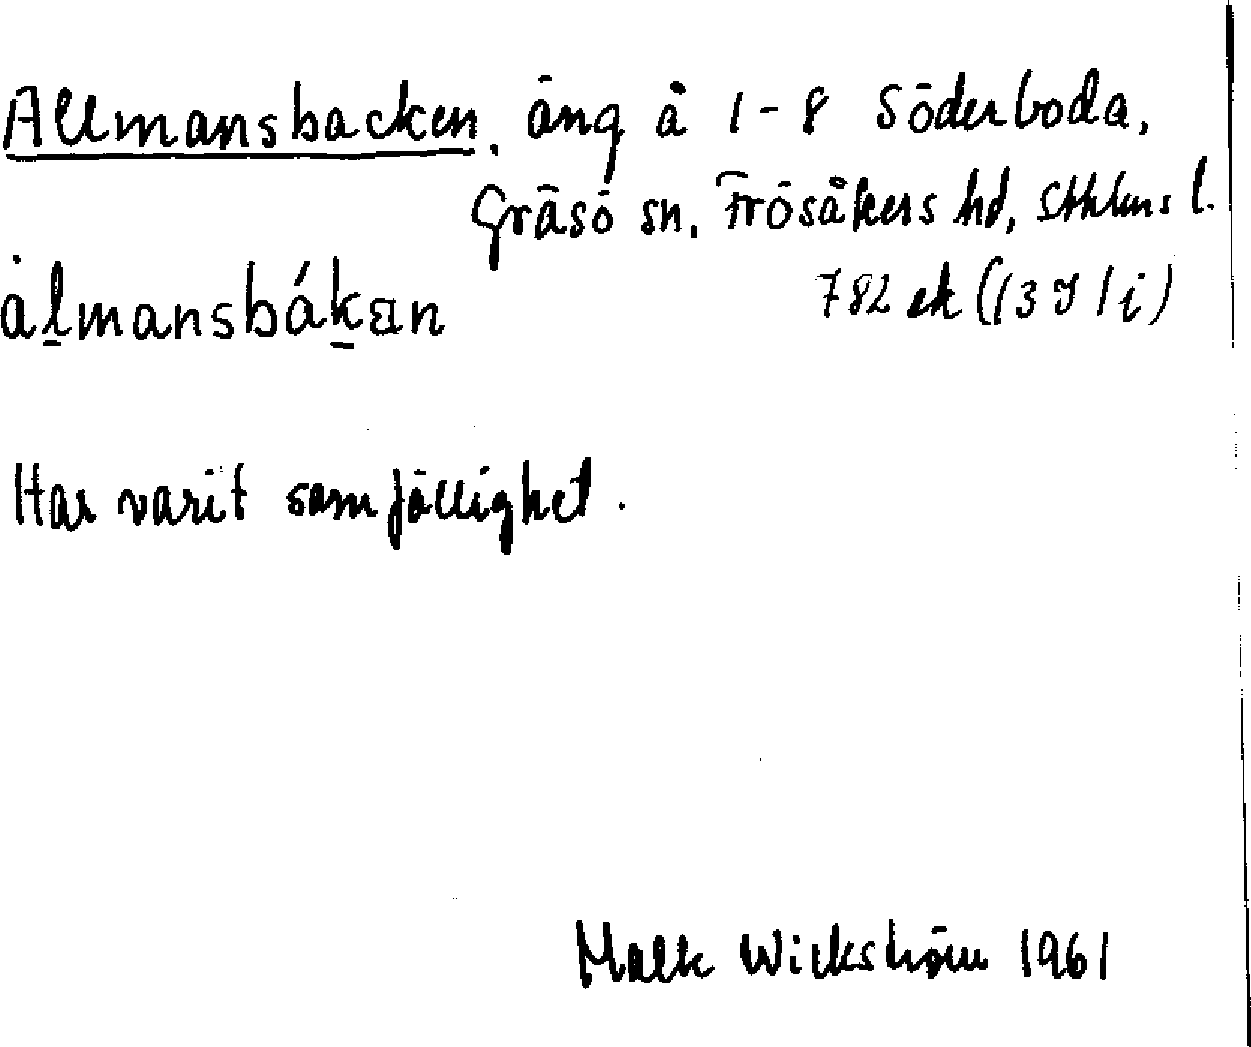 Allmansbacken, äng å 1-8 Söderboda,
Gräsö sn, Frösåkers hd, Sthlms l.
àl̲mansbák̲ən
782 ek (13 I 1 i)
Har varit samfällighet.
Wickström 1961